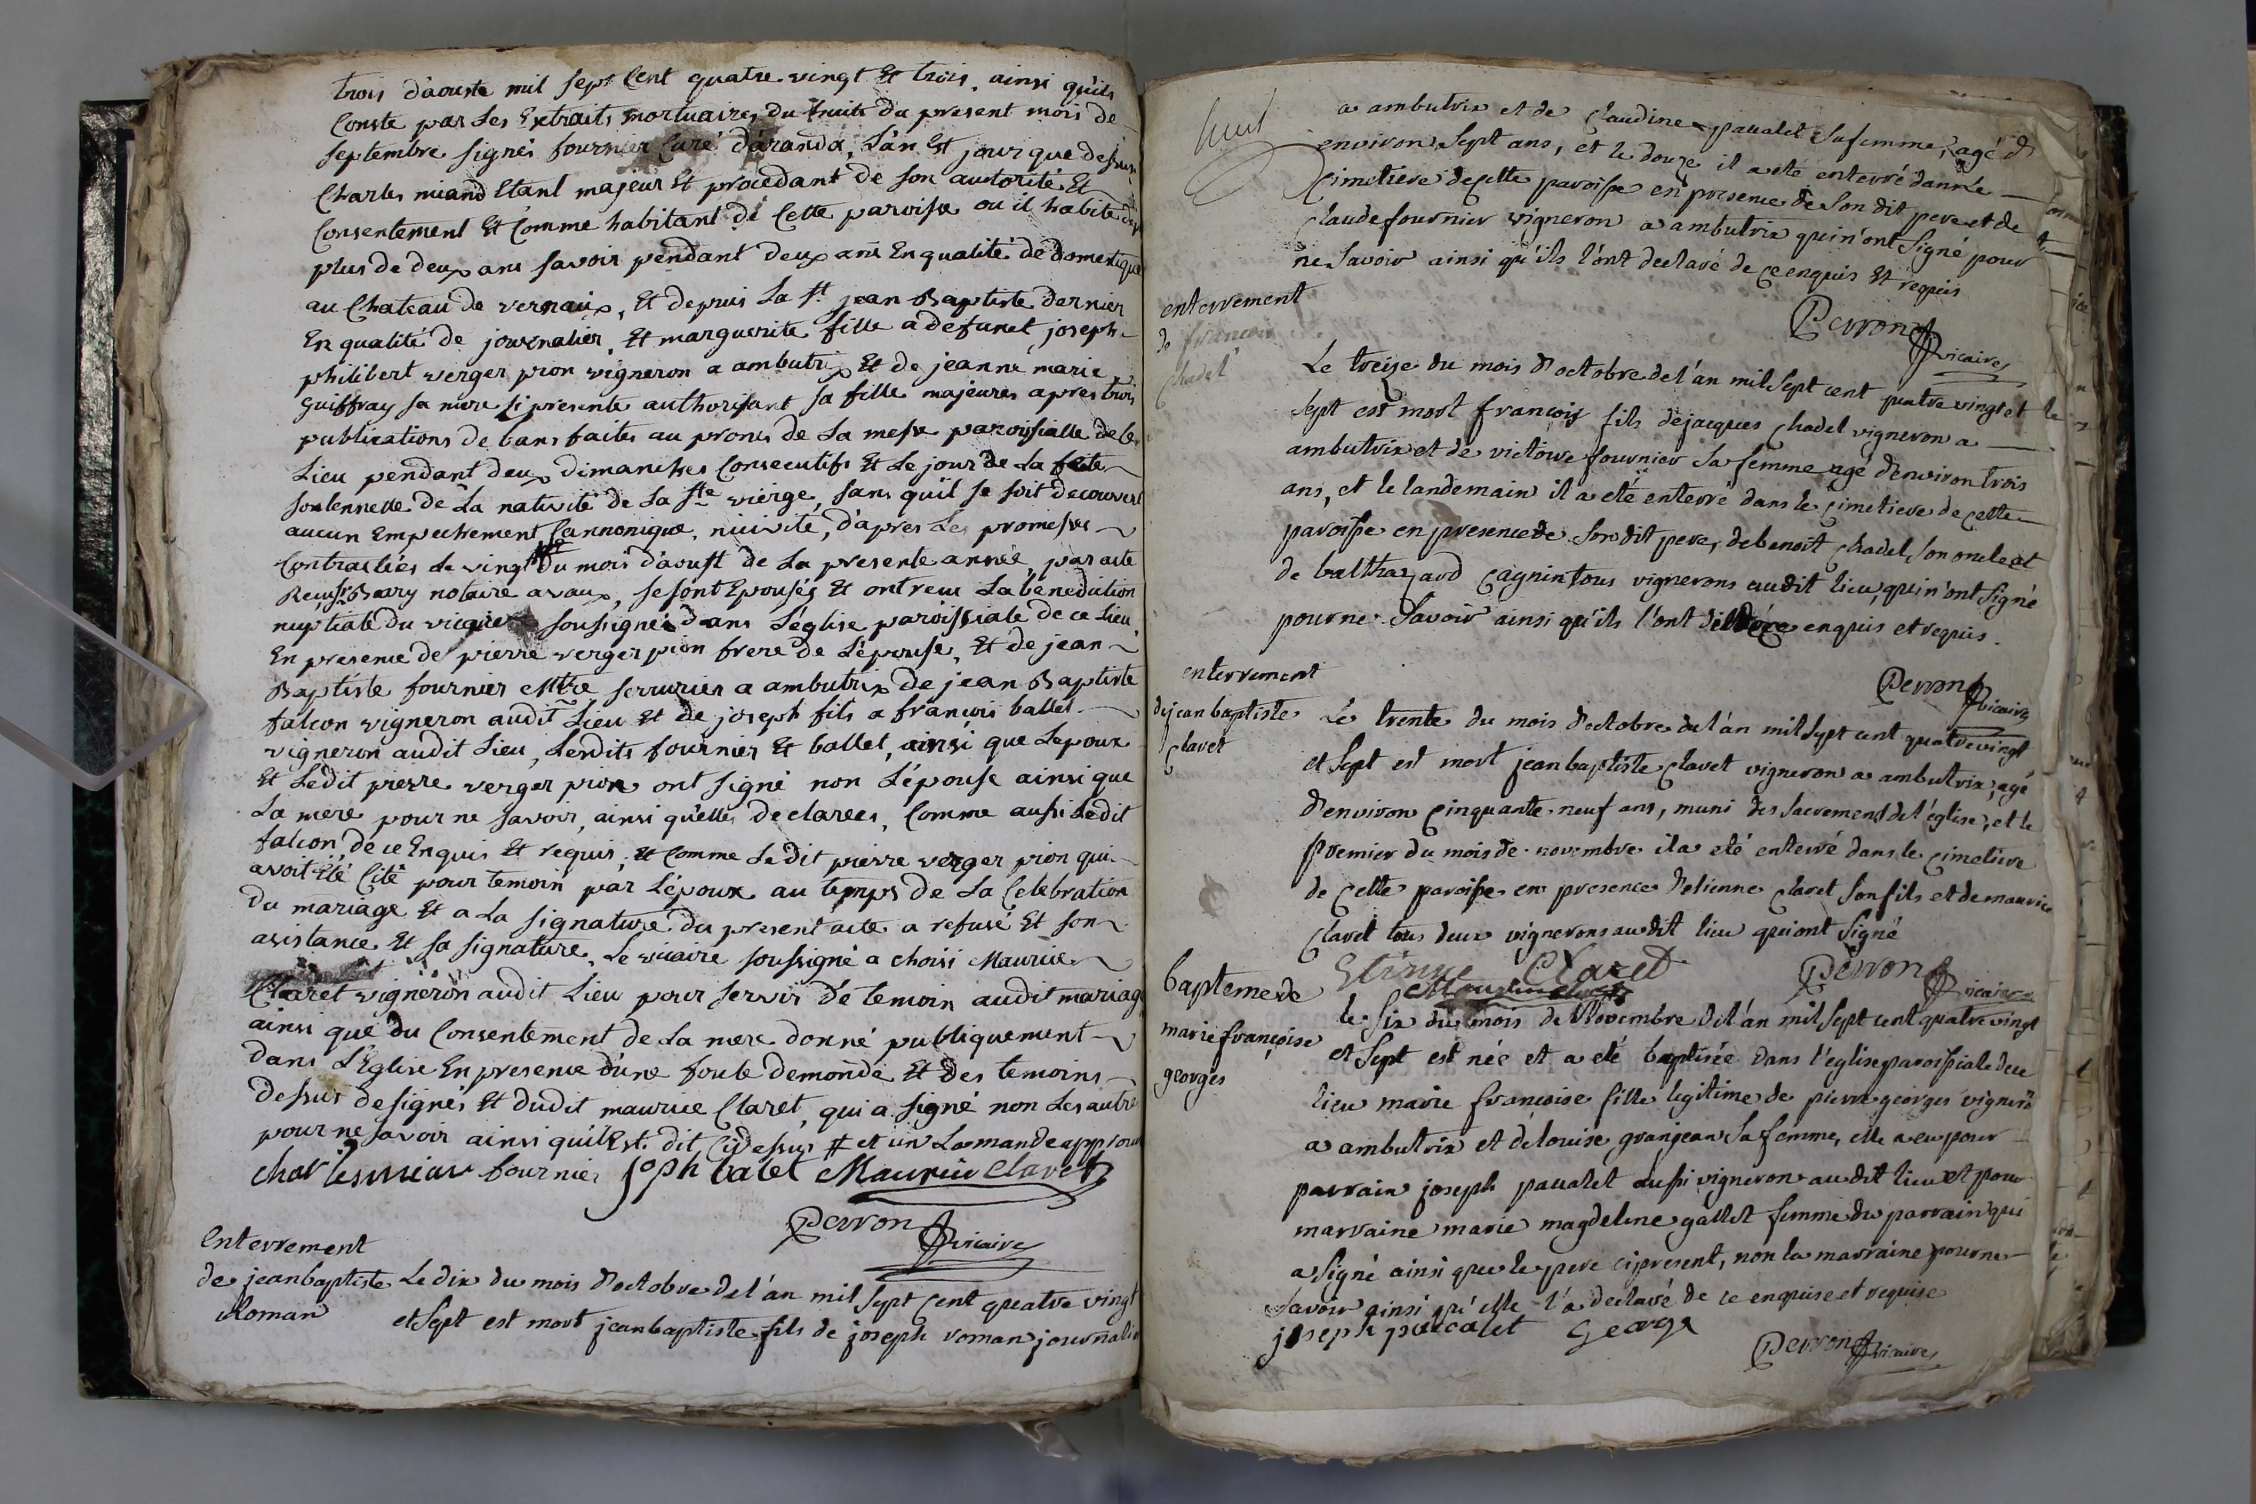 trois d'aouste mil sept Cent quatre vingt Et trois, ainsi qu'ils
Conste par Les Extraits mortuaires du huit du present mois de
septembre signés fournier Curé d'aranda, L'an Et jour que dessus
Charles miand Etant majeur Et procedant de son autorité Et
Consentement Et Comme habitant de Cette paroisse ou il habite
plus de deux ans savoir pendant deux ans En qualité de domestique
au Chateau de vernaux, Et depuis La st jean Baptiste dernier
En qualité de journalier, Et marguerite fille a defunct joseph
philibert verger pion vigneron a ambutrix Et de jeanne marie
Guiffray sa mere si presente authorisant sa fille majeures apres trois
publications de bans faites au prones de La messe paroissialle de ce
Lieu pendant deux dimanches Consecutifs Et Le jour de La fete
sonlennelle de La nativité de La ste vierge, sans qu'il se soit decouvert
aucun Empechement Cannonique, ni civile, d'apres Les promesses
Contractées Le vingt du mois d'aoust de La presente année, par acte
Reçu Bary notaire a vaux, se sont Epousés Et ont recu La benediction
nuptiale du vicaire soussigné dans L'église paroissiale de ce Lieu
En presence de pierre verger pion frere de L'épouse, Et de jean
Baptiste fournier Mtre serrurier a ambutrix de jean Baptiste
falcon vigneron audit Lieu Et de joseph fils a francois ballet
vigneron audit Lieu, Lesdits fournier Et ballet, ainsi que Lepoux
Et Ledit pierre verger pion ont signé non L'épouse ainsi que
La mere pour ne savoir, ainsi qu'elles declarees, Comme aussi Ledit
falcon de ce Enquis Et requis, Et Comme Ledit pierre verger pion qui
avoit été Cité pour temoin par L'époux au temps de La Celebration
du mariage Et a La signature du present acte a refusé Et son
asistance Et sa signature, Le vicaire soussigné a choisi Maurice
Claret vigneron audit Lieu pour servir de temoin audit mariage
ainsi que du Consentement de La mere donné publiquement
dans L'Eglise En presence d'une foule de monde Et des temoins
dessus designés Et dudit maurice Claret, qui a signé non Les autres
pour ne savoir ainsi qu'il Est dit Cidessus # et un Lamande approuv
charles miau fournier joph balet Maurice Claret
Perron vicaire
Enterrement
de jeanbaptiste
Roman
Le dix du mois d'octobre de l'an mil sept Cent quatre vingt
et sept est mort jeanbaptiste fils de joseph roman journalier
huit
a ambutrix et de Claudine paualet sa femme, agé d
environ sept ans, et le douze il a été enterré dans le
cimetiere de cette paroisse en presence de son dit pere et de
Claude fournier vigneron a ambutrix qui n'ont signé pour
ne savoir ainsi qu'ils l'ont declaré de ce enquis Et requis
Perron vicaire
enterrement
de francois
Chadel
Le treize du mois d'octobre de l'an mil sept cent quatre vingt et
sept est mort françois fils de jacques Chadel vigneron a
ambutrix et de victoire fournier sa femme agé d'environ trois
ans, et le landemain il a eté enterré dans le cimetiere de cette
paroisse en presence de son dit pere, de benoit Chadel son oncle et
de balthazard Cagnin tous vignerons audit lieu, qui n'ont signé
pour ne savoir ainsi qu'ils l'ont enquis et requis.
Perron vicaire
enterrement
de jean baptiste
Claret
Le trente du mois d'octobre de l'an mil sept cent quatre vingt
et sept est mort jean baptiste Claret vigneron a ambutrix, agé
d'environ cinquante neuf ans, muni des sacrements de l'église, et le
premier du mois de novembre il a eté enterré dans le cimetiere
de cette paroisse en presence d'etienne Claret son fils et de maurice
Claret tous deux vignerons audit lieu qui ont signé
Etienne Claret Perron vicaire
Maurice Claret
Baptemede
marie françoise
georges
le six du mois de Novembre de l'an mil sept cent quatre vingt
et sept est née et a eté baptisée dans l'eglise paroissiale de ce
lieu marie françoise fille legitime de pierre georges vigneron
a ambutrix et de louise granjean sa femme, elle a eu pour
parrain joseph paualet aussi vigneron audit lieu et pour
marraine marie magdelene gallet femme du parrain qui
a signé ainsi que le pere cipresent, non la marraine pour ne
savoir ainsi qu'elle l'a declaré de ce enquise et requise
joseph paccalet George
Perron vicaire